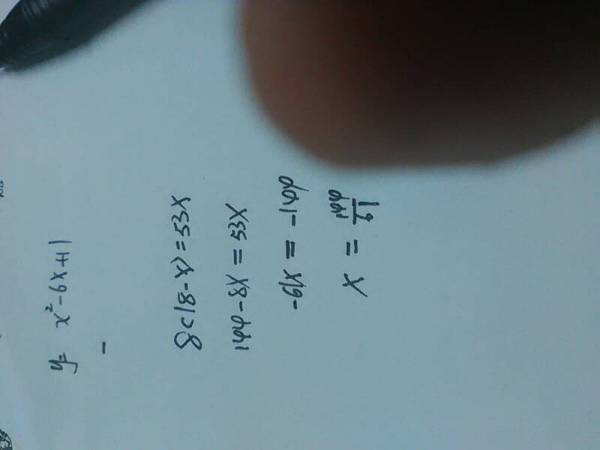 y= x²-6x+1
-
8(18-x)=53x
144-8x=53x
-61x = -144
x = 144/61